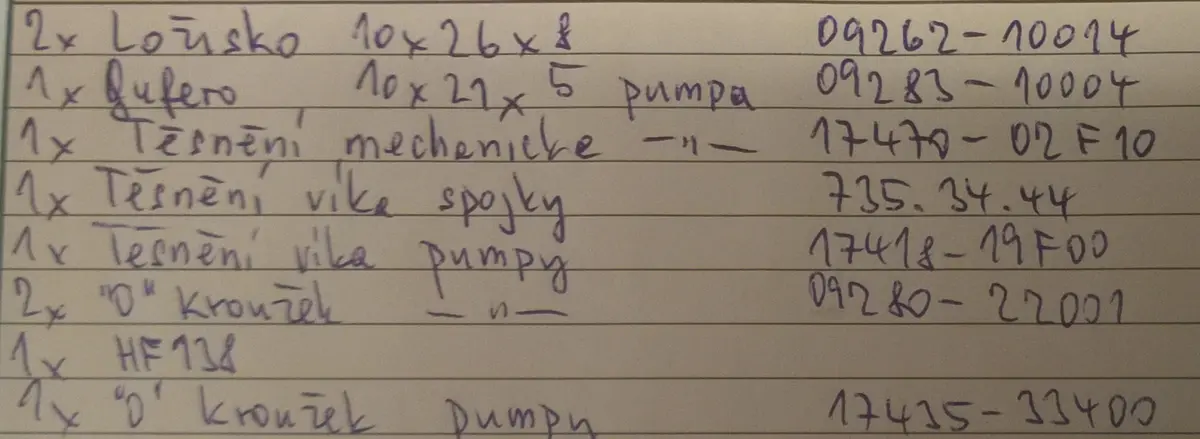 2x Ložisko 10x26x8 09262-10014
1x Gufero 10x21x5 pumpa 09283-10004
1x Těsnění mechenicke —"— 17470-02F10
1x Těsnění víka spojky 735.34.44
1x Těsnění víka pumpy 17418-19F00
2x "O" kroužek —"— 09280-22001
1x HF138
1x "O" kroužek pumpy 17435-33400